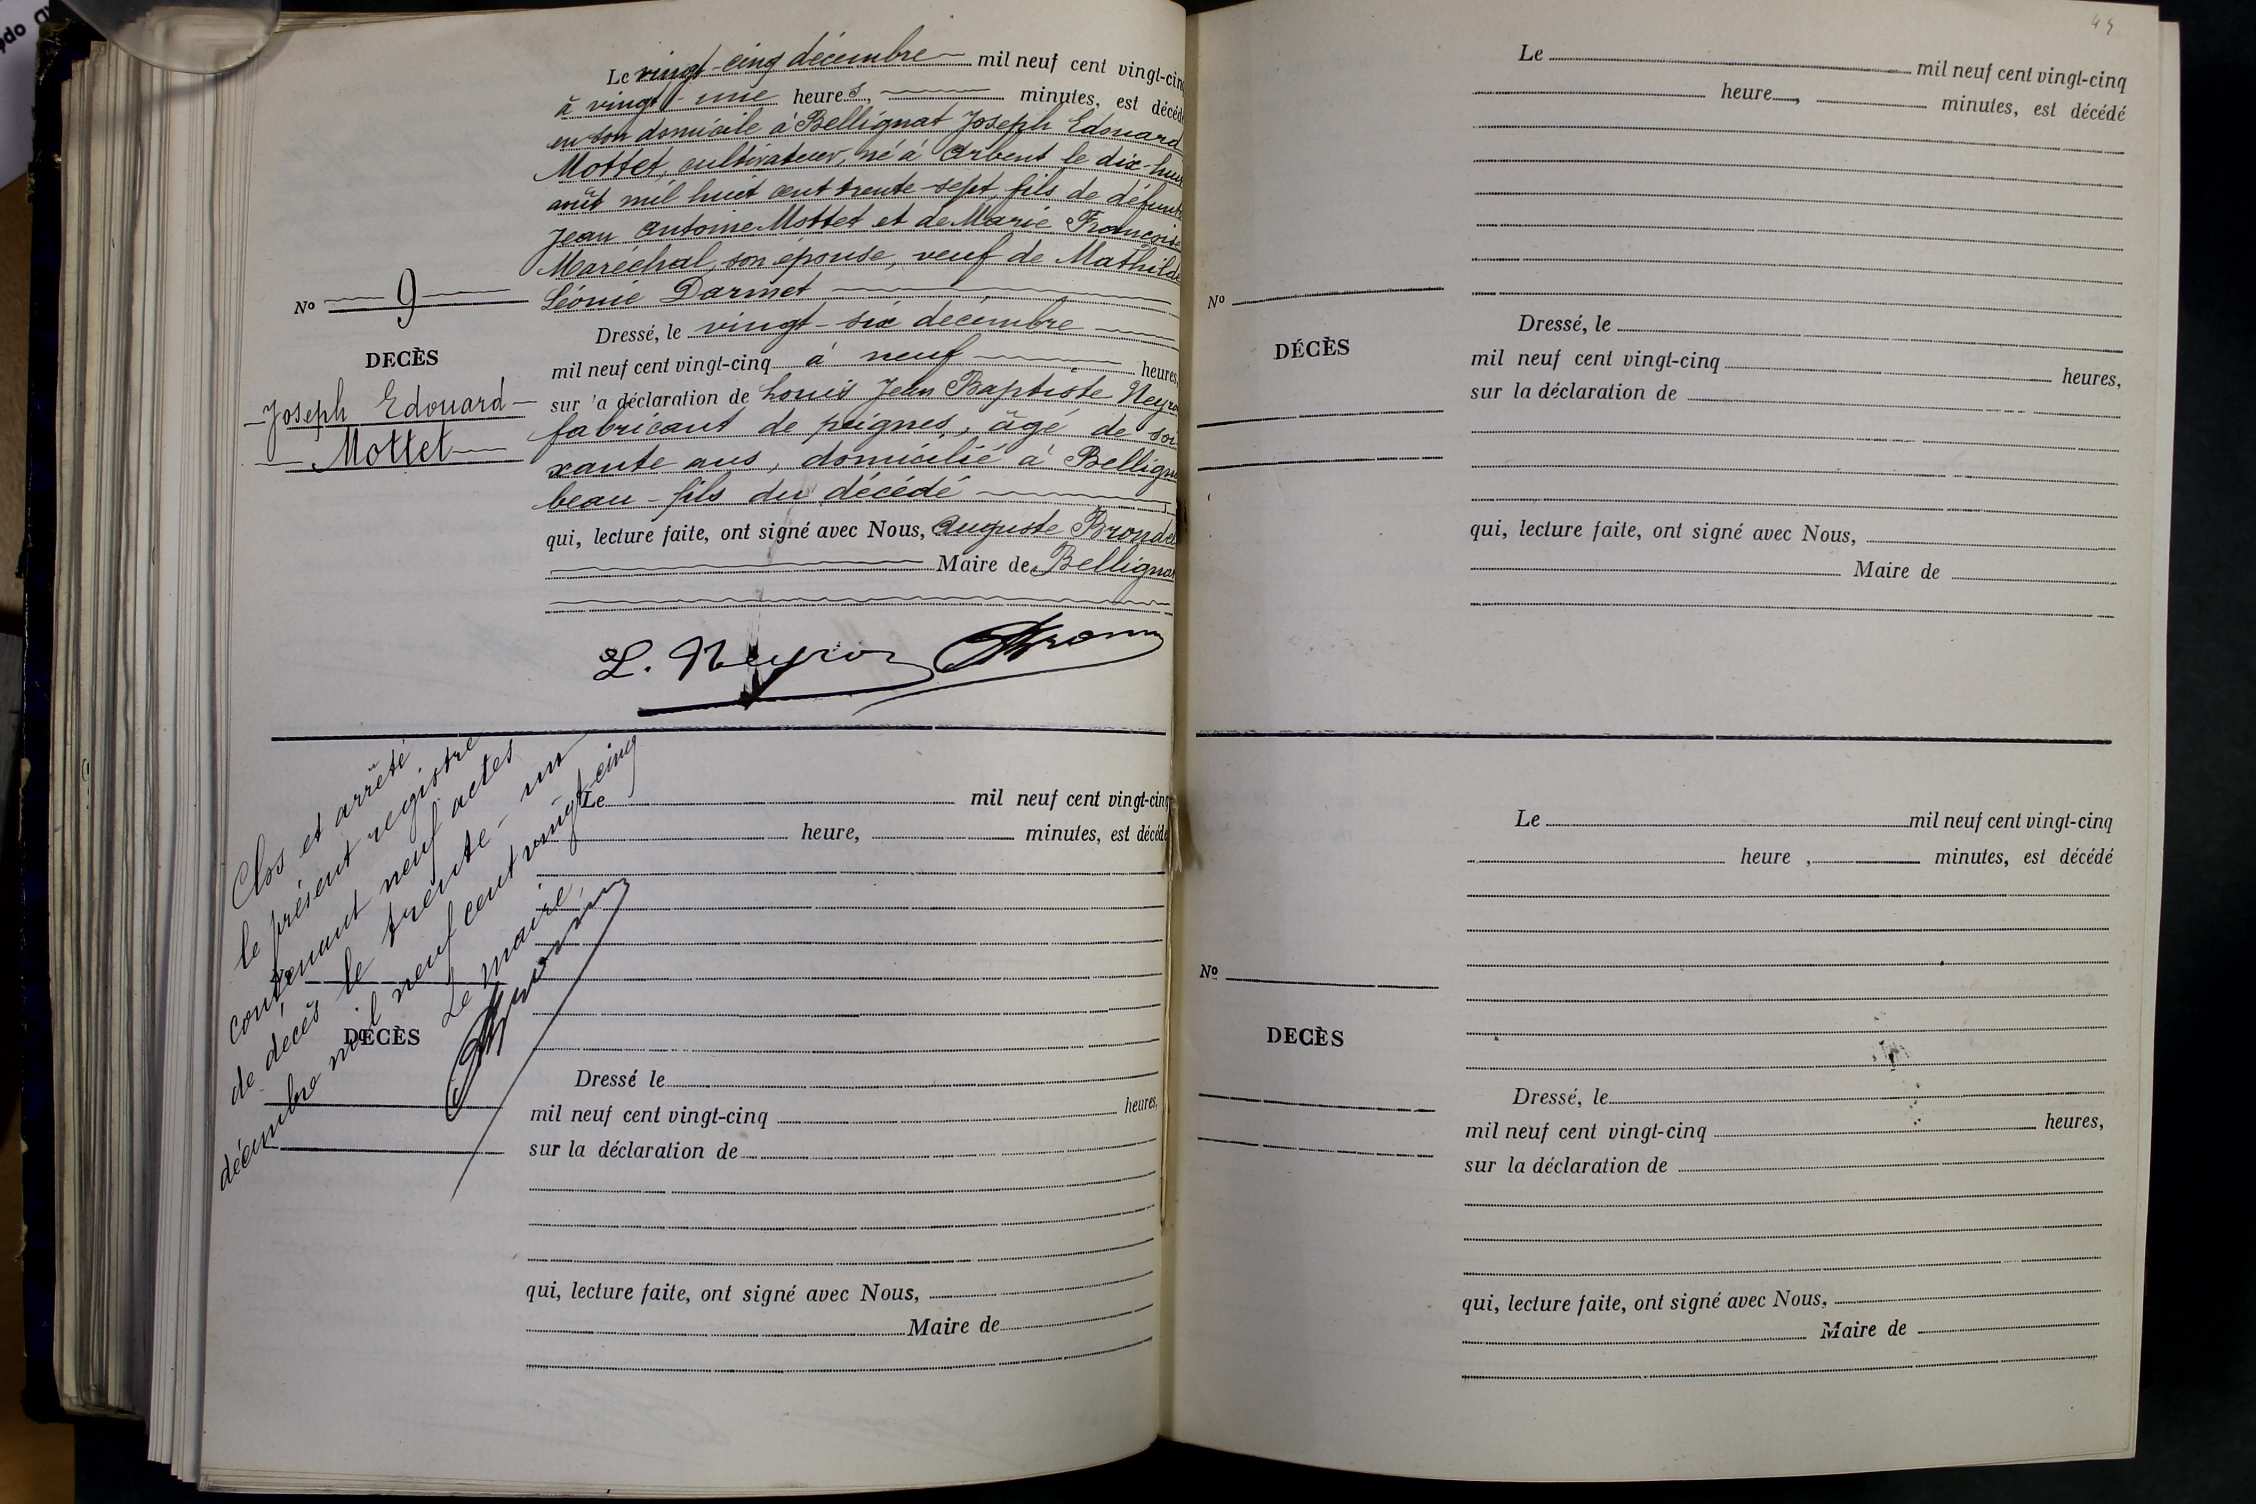 44
Le vingt-cinq décembre mil neuf cent vingt-cinq
à vingt-une heures, minutes, est décédé
en son domicile à Bellignat Joseph Edouard
Mottet, cultivateur, né à Arbent le dix-huit
août mil huit cent trente-sept fils de défunts
Jean Antoine Mottet et de Marie Françoise
Maréchal, son épouse, veuf de Mathilde
Léonie Darmet
Dressé, le vingt-six décembre
mil neuf cent vingt-cinq à neuf heures,
sur la déclaration de Louis Jean Baptiste Neyro
fabricant de peignes, âgé de soi
xante ans, domicilié à Belligna
beau-fils du décédé
qui, lecture faite, ont signé avec Nous, Auguste Bronde
Maire de Bellignat
L. Neyron
No 9
DECÈS
Joseph Edouard
Mottet
Clos et arrêté
le présent registre
contenant neuf actes
de décès le trente-un
décembre mil neuf cent vingt-cinq
Le maire,
DÉCÈS
Le mil neuf cent vingt-cinq
heure, minutes, est décédé
Dressé le
mil neuf cent vingt-cinq heures,
sur la déclaration de
qui, lecture faite, ont signé avec Nous,
Maire de
Le mil neuf cent vingt-cinq
heure , minutes, est décédé
No
DÉCÈS
Dressé, le
mil neuf cent vingt-cinq heures,
sur la déclaration de
qui, lecture faite, ont signé avec Nous,
Maire de
Le mil neuf cent vingt-cinq
heure , minutes, est décédé
No
DECÈS
Dressé, le
mil neuf cent vingt-cinq heures,
sur la déclaration de
qui, lecture faite, ont signé avec Nous,
Maire de